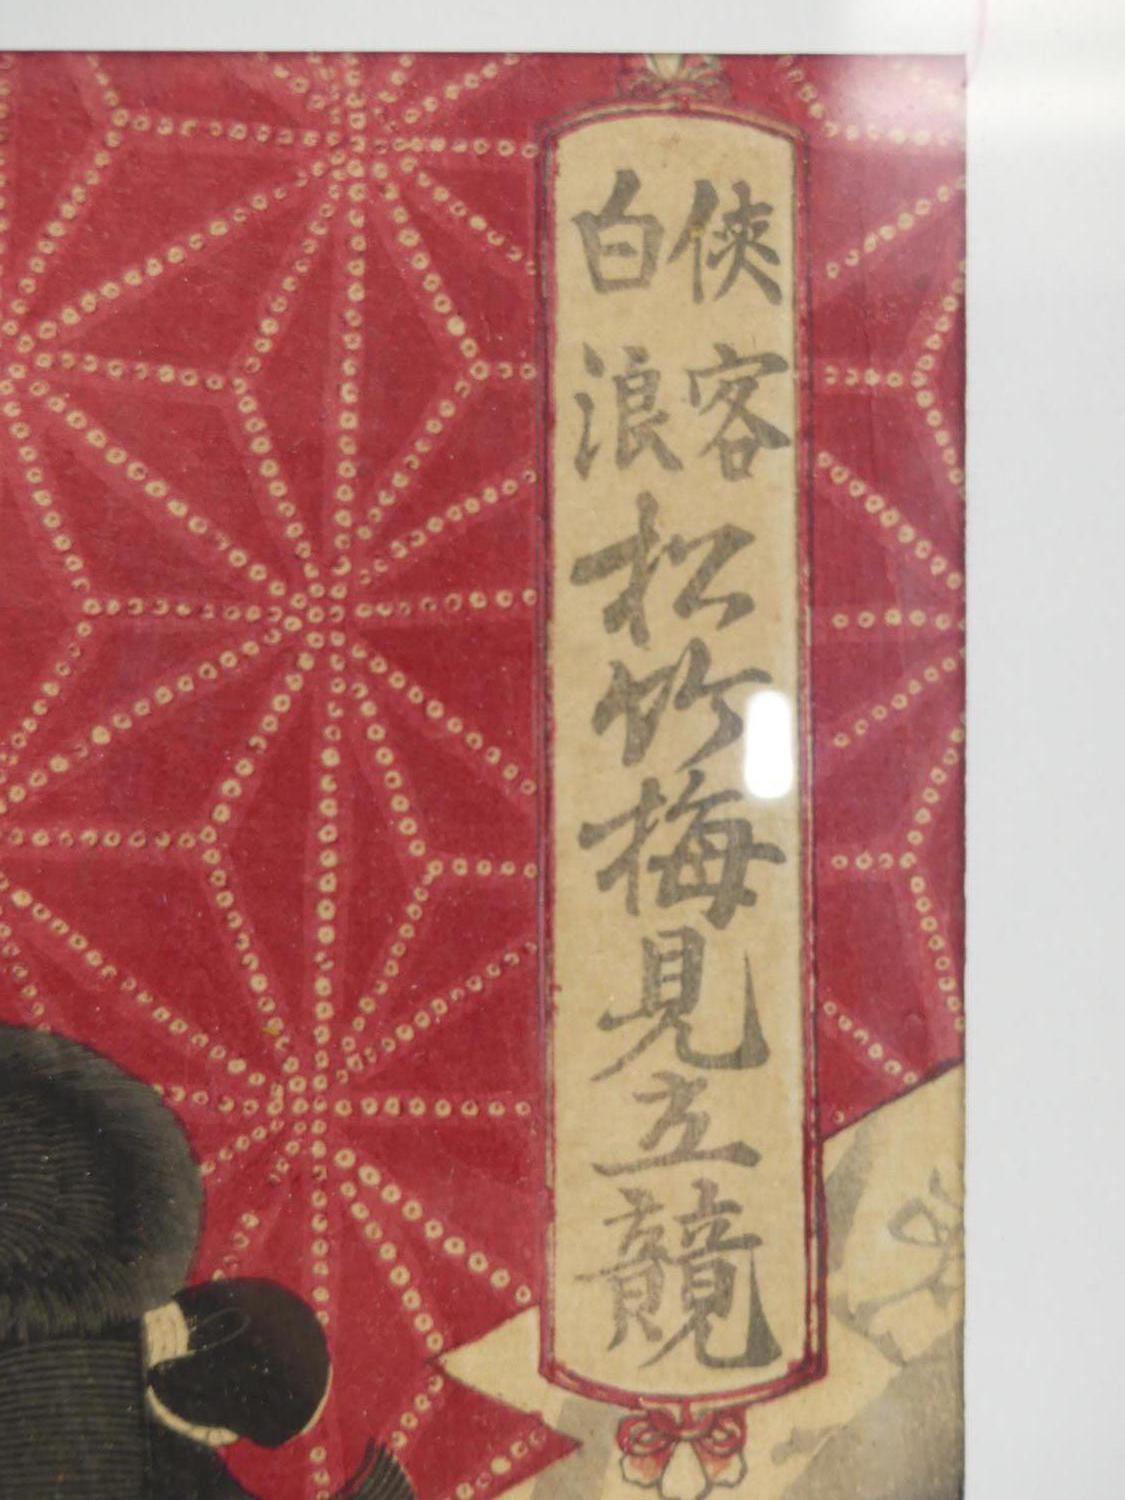 侠客
白浪
松竹梅見立競